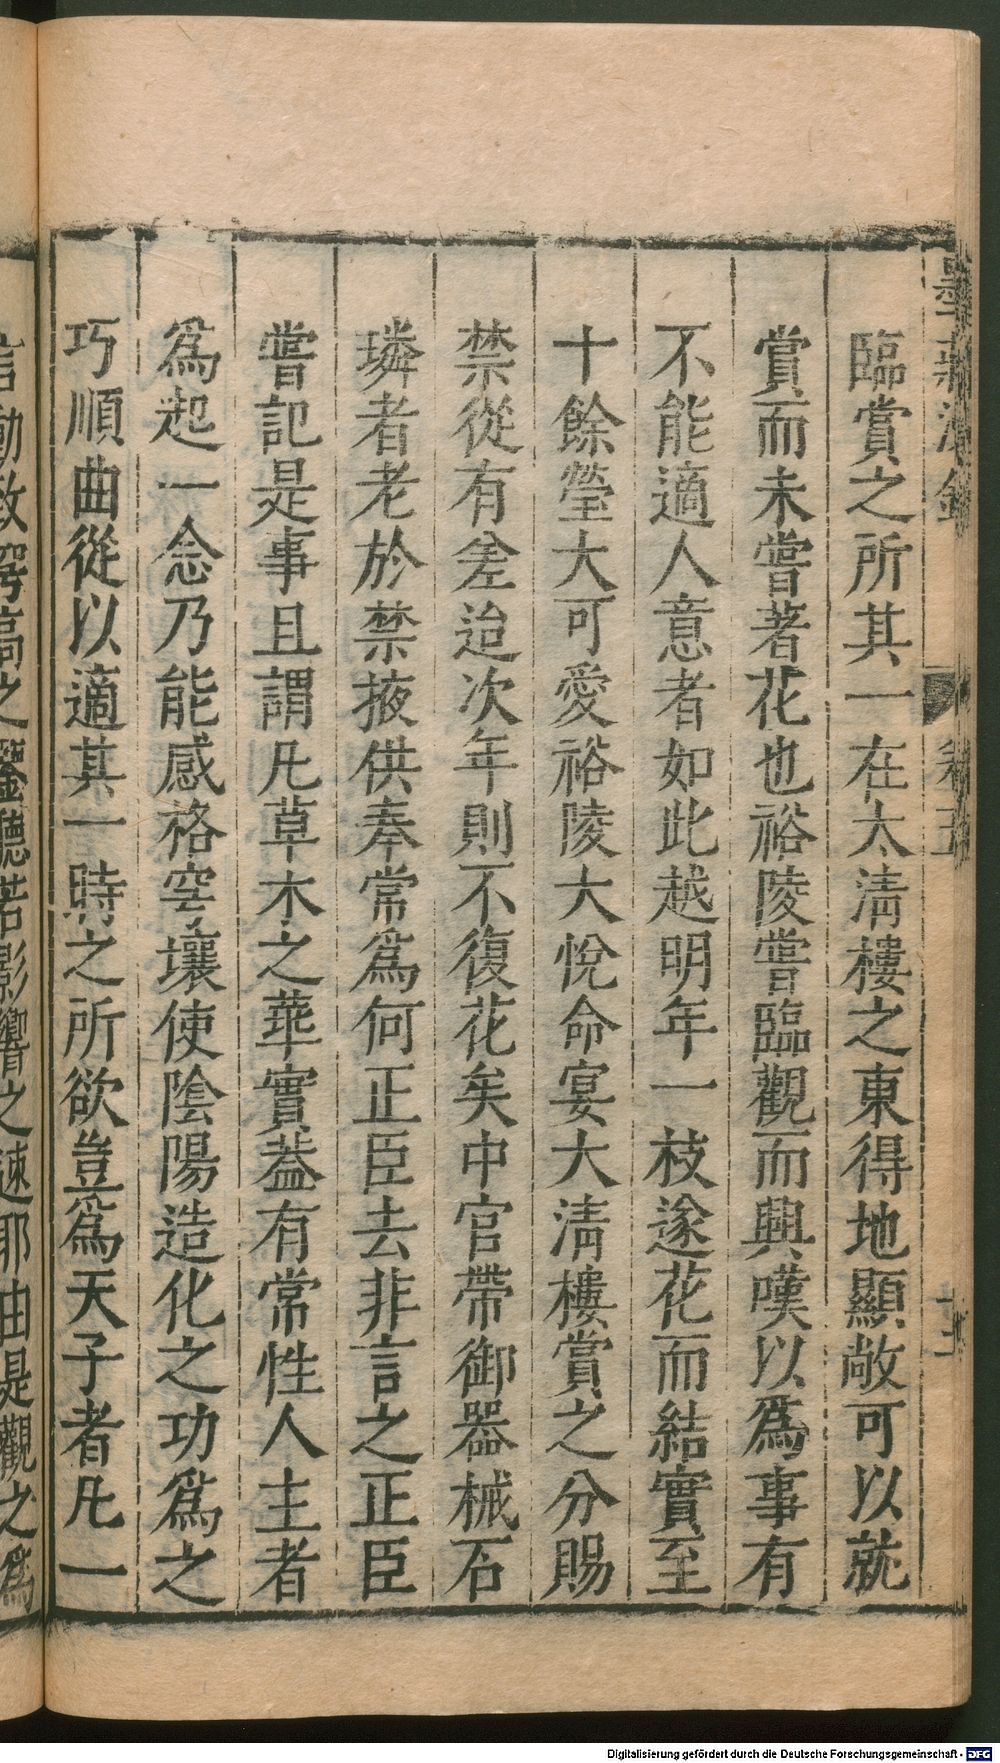 墨莊漫錄 卷五
臨賞之所其一在太淸樓之東得地顯敞可以就
賞而未嘗著花也裕陵嘗臨觀而興嘆以為事有
不能適人意者如此越明年一枝遂花而結實至
十餘瑩大可愛裕陵大悅命宴大淸樓賞之分賜
禁從有差迨次年則不復花矣中官帶御器械石
璘者老於禁掖供奉常為何正臣去非言之正臣
嘗記是事且謂凡草木之華實葢有常性人主者
為起一念乃能感格穹壤使陰陽造化之功為之
巧順曲從以適其一時之所欲豈為天子者凡一
言動致 高之鑒聽若影響之速耶由是觀之為
Digitalisierung gefördert durch die Deutsche Forschungsgemeinschaft - DFG